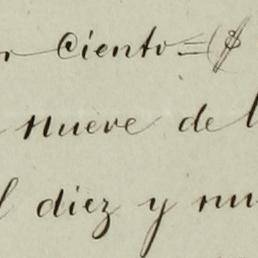 r Ciento = ($
nueve de l
l diez y nu